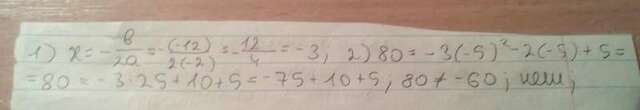 1) x = -в/2а = -(-12)/2(-2) = -12/4 = -3; 2) 80 = -3(-5)² - 2(-5) + 5 =
= 80 = -3·25 + 10 + 5 = -75 + 10 + 5, 80 ≠ -60; нет;